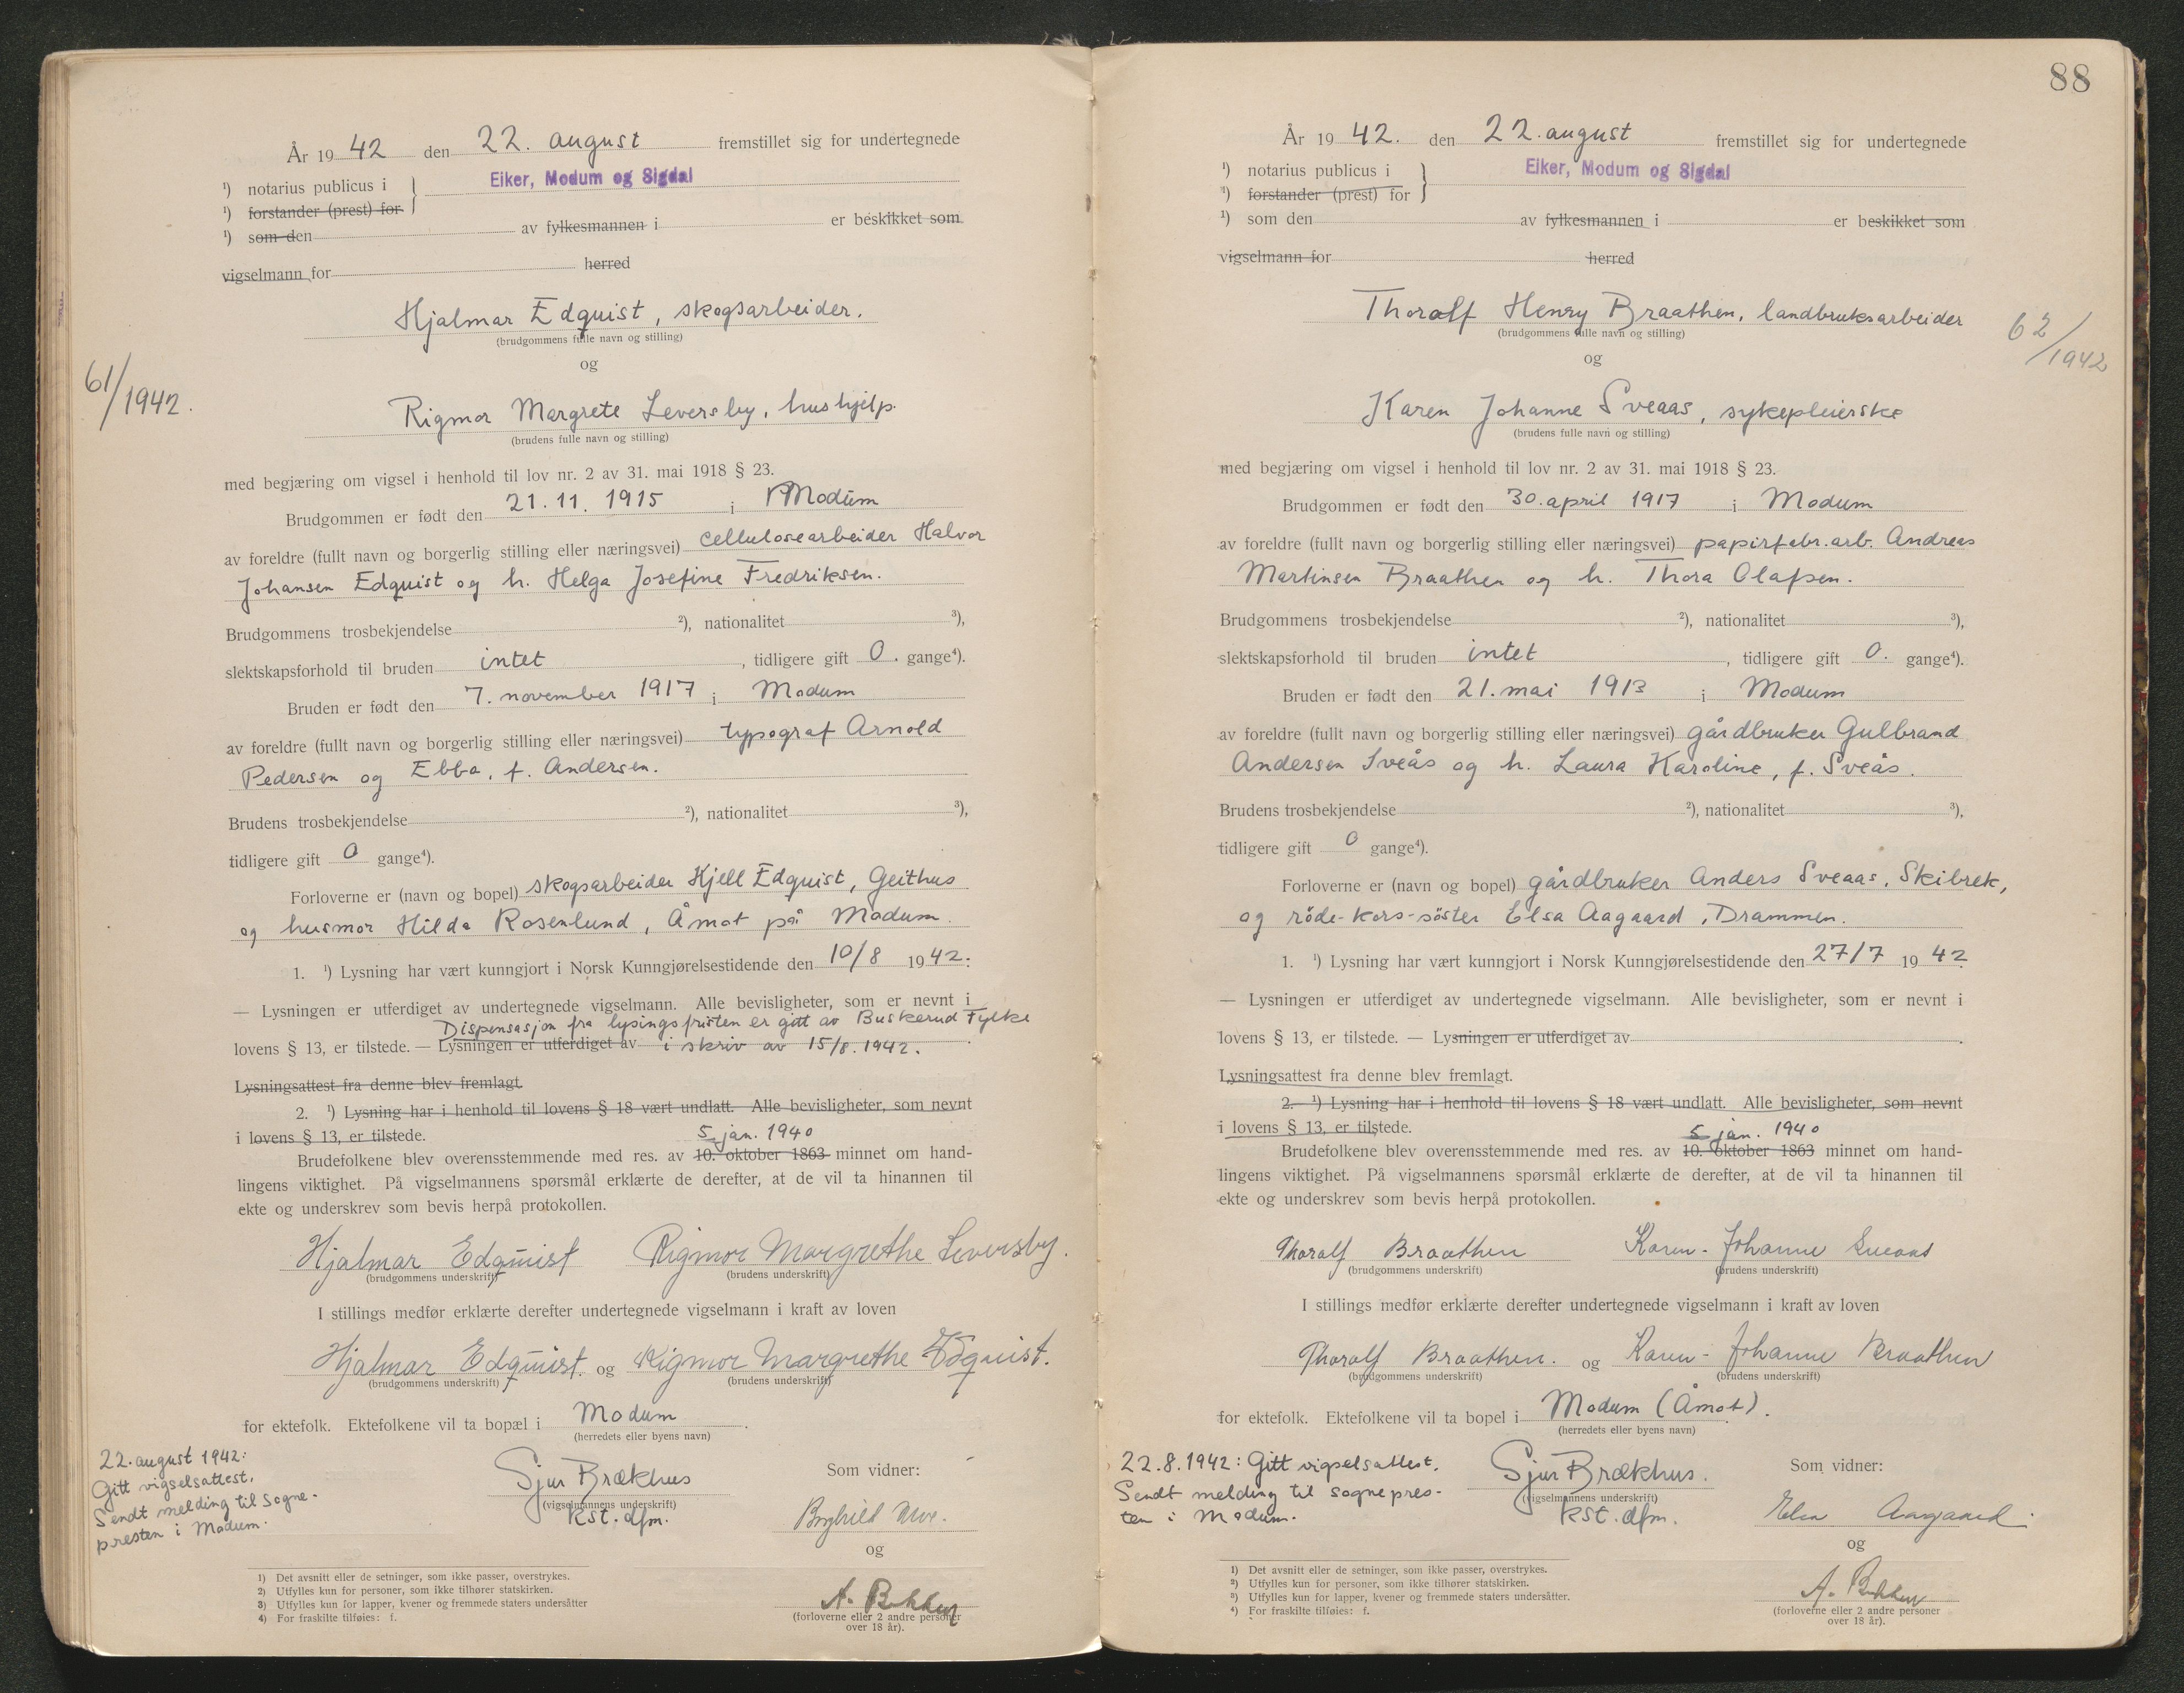 År 19 42 den 22. august fremstillet sig for undertegnede
¹) notarius publicus i } Eiker, Modum og Sigdal
¹) forstander (prest) for
¹) som den av fylkesmannen i er beskikket som
vigselmann for herred
Hjalmar Edquist, skogsarbeider.
(brudgommens fulle navn og stilling)
og
61/1942.
Rigmor Margrete Leversby, hushjelp.
(brudens fulle navn og stilling)
med begjæring om vigsel i henhold til lov nr. 2 av 31. mai 1918 § 23.
Brudgommen er født den 21. 11. 1915 i Modum
av foreldre (fullt navn og borgerlig stilling eller næringsvei) cellulosearbeider Halvor
Johansen Edquist og h. Helga Josefine Fredriksen.
Brudgommens trosbekjendelse ²), nationalitet ³),
slektskapsforhold til bruden intet, tidligere gift 0. gange⁴).
Bruden er født den 7. november 1917 i Modum
av foreldre (fullt navn og borgerlig stilling eller næringsvei) typograf Arnold
Pedersen og Ebba, f. Andersen.
Brudens trosbekjendelse ²), nationalitet ³),
tidligere gift 0 gange⁴).
Forloverne er (navn og bopel) skogsarbeider Kjell Edquist, Geithus
og husmor Hilda Rosenlund, Åmot på Modum.
1. ¹) Lysning har vært kunngjort i Norsk Kunngjørelsestidende den 10/8 1942.
— Lysningen er utferdiget av undertegnede vigselmann. Alle bevisligheter, som er nevnt i
Dispensasjon fra lysingsfristen er gitt av Buskerud Fylke
lovens § 13, er tilstede. — Lysningen er utferdiget av i skriv av 15/8. 1942.
Lysningsattest fra denne blev fremlagt.
2. ¹) Lysning har i henhold til lovens § 18 vært undlatt. Alle bevisligheter, som nevnt
i lovens § 13, er tilstede.
5. jan. 1940
Brudefolkene blev overensstemmende med res. av 10. oktober 1863 minnet om hand-
lingens viktighet. På vigselmannens spørsmål erklærte de derefter, at de vil ta hinannen til
ekte og underskrev som bevis herpå protokollen.
Hjalmar Edquist Rigmor Margrethe Leversby.
(brudgommens underskrift) (brudens underskrift)
I stillings medfør erklærte derefter undertegnede vigselmann i kraft av loven
Hjalmar Edquist. og Rigmor Margrethe Edquist.
(brudgommens underskrift) (brudens underskrift)
for ektefolk. Ektefolkene vil ta bopæl i Modum.
(herredets eller byens navn)
22. august 1942:
Gitt vigselsattest.
Sendt melding til sogne-
presten i Modum.
Sjur Brækhus
(vigselmannens underskrift)
kst. dfm.
Som vidner:
og
A. Bakken
(forloverne eller 2 andre personer
over 18 år).
1) Det avsnitt eller de setninger, som ikke passer, overstrykes.
2) Utfylles kun for personer, som ikke tilhører statskirken.
3) Utfylles kun for lapper, kvener og fremmede staters undersåtter
4) For fraskilte tilføies: f.
88
År 19 42. den 22. august fremstillet sig for undertegnede
¹) notarius publicus i } Eiker, Modum og Sigdal
¹) forstander (prest) for
¹) som den av fylkesmannen i er beskikket som
vigselmann for herred
Thoralf Henry Braathen, landbruksarbeider
(brudgommens fulle navn og stilling)
62/1942
og
Karen Johanne Sveaas, sykepleierske
(brudens fulle navn og stilling)
med begjæring om vigsel i henhold til lov nr. 2 av 31. mai 1918 § 23.
Brudgommen er født den 30. april 1917 i Modum
av foreldre (fullt navn og borgerlig stilling eller næringsvei) papirfabr.arb. Andreas
Martinsen Braathen og h. Thora Olafsen.
Brudgommens trosbekjendelse ²), nationalitet ³),
slektskapsforhold til bruden intet, tidligere gift 0. gange⁴).
Bruden er født den 21. mai 1913 i Modum
av foreldre (fullt navn og borgerlig stilling eller næringsvei) gårdbruker Gulbrand
Andersen Sveås og h. Laura Karoline, f. Sveås.
Brudens trosbekjendelse ²), nationalitet ³),
tidligere gift 0 gange⁴).
Forloverne er (navn og bopel) gårdbruker Anders Sveaas, Skibrek,
og röde-kors-söster Elsa Aagaard, Drammen.
1. ¹) Lysning har vært kunngjort i Norsk Kunngjørelsestidende den 27/7 19 42
— Lysningen er utferdiget av undertegnede vigselmann. Alle bevisligheter, som er nevnt i
lovens § 13, er tilstede. — Lysningen er utferdiget av .
Lysningsattest fra denne blev fremlagt.
2. ¹) Lysning har i henhold til lovens § 18 vært undlatt. Alle bevisligheter, som nevnt
i lovens § 13, er tilstede.
5 jan. 1940
Brudefolkene blev overensstemmende med res. av 10. oktober 1863 minnet om hand-
lingens viktighet. På vigselmannens spørsmål erklærte de derefter, at de vil ta hinannen til
ekte og underskrev som bevis herpå protokollen.
Thoralf Braathen Karen-Johanne Sveaas
(brudgommens underskrift) (brudens underskrift)
I stillings medfør erklærte derefter undertegnede vigselmann i kraft av loven
Thoralf Braathen. og Karen-Johanne Braathen
(brudgommens underskrift) (brudens underskrift)
for ektefolk. Ektefolkene vil ta bopel i Modum (Åmot).
(herredets eller byens navn)
22.8.1942: Gitt vigselsattest.
Sendt melding til sognepres-
ten i Modum.
Sjur Brækhus.
(vigselmannens underskrift)
kst. dfm.
Som vidner:
Elsa Aagaard.
og
A. Bakken
(forloverne eller 2 andre personer
over 18 år).
1) Det avsnitt eller de setninger, som ikke passer, overstrykes.
2) Utfylles kun for personer, som ikke tilhører statskirken.
3) Utfylles kun for lapper, kvener og fremmede staters undersåtter.
4) For fraskilte tilføies: f.